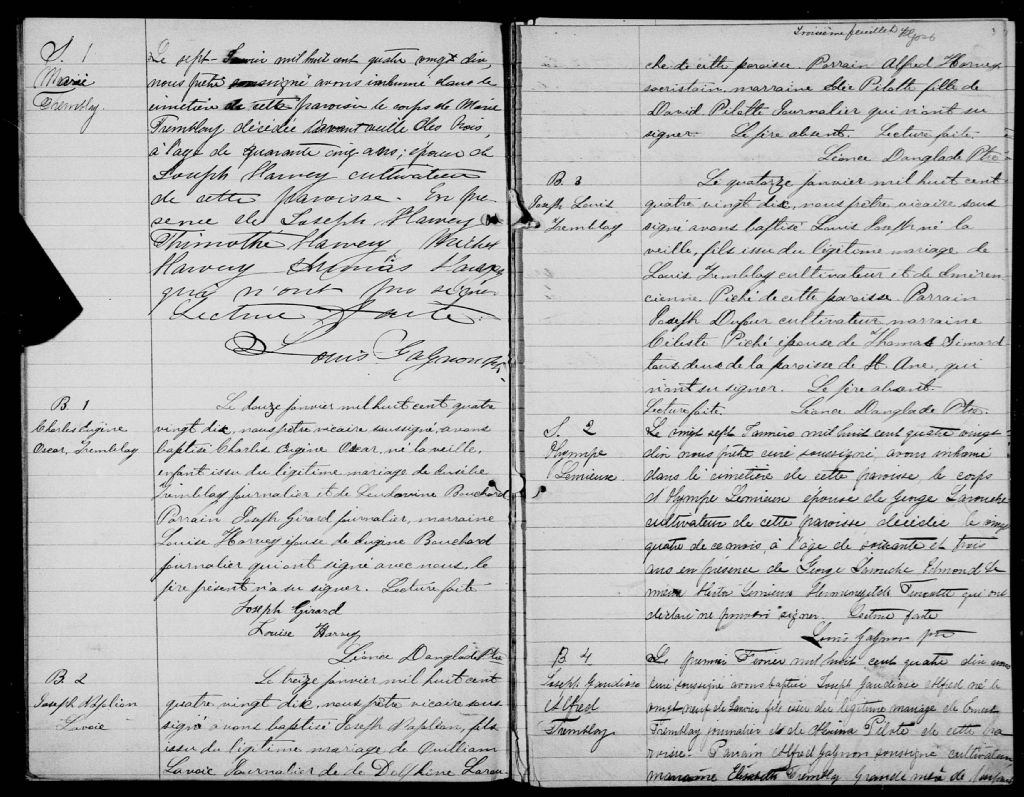 S. 1
Marie
Tremblay.
Le sept Janvier mil huit cent quatre vingt dix,
nous prêtre soussigné avons inhumé dans le
cimetière de cette paroisse le corps de Marie
Tremblay décédée l'avant veille des Rois,
à l'age de quarante cinq ans; épouse de
Joseph Harvey cultivateur
de cette paroisse. En pre
sence de Joseph Harvey
Thimothé Harvey,
Harvey Thomas Harvey
qui n'ont pu signer
Lecture faite.
Louis Gagnon ptre
B. 1
Charles Eugène
Oscar, Tremblay
Le douze janvier mil huit cent quatre
vingt dix, nous prêtre vicaire soussigné, avons
baptisé Charles Eugène Oscar, né la veille,
enfant issu du légitime mariage de
Tremblay journalier et de Ludivine Bouchard
Parrain Joseph Girard journalier, marraine
Louise Harvey épouse de Eugène Bouchard
journalier qui ont signé avec nous, le
père présent n'a su signer. Lecture faite
Joseph Girard
Louise Harvey
Léonce Danglade Ptre
B. 2
Joseph Napléon
Lavoie
Le treize janvier mil huit cent
quatre vingt dix, nous prêtre vicaire sous
signé avons baptisé Joseph Napléon, fils
issu du légitime mariage de Ouilliam
Lavoie Journalier de de Delphine Larou
Troisième feuillet
che de cette paroisse. Parrain Alfred Harvey
sacristain, marraine Pilotte fille de
David Pilotte Journalier qui n'ont su
signer. Le père absent. Lecture faite.
Léonce Danglade Ptre
B. 3
Joseph Louis
Tremblay
Le quatorze janvier mil huit cent
quatre vingt dix, nous prêtre vicaire sous
signé avons baptisé Louis Joseph né la
veille, fils issu du légitime mariage de
Louis Tremblay cultivateur et de Emeren
cienne Piché de cette paroisse. Parrain
Joseph Dufour cultivateur, marraine
Céleste Piché épouse de Thomas Simard
tous deux de la paroisse de St Ane, qui
n'ont su signer. Le père absent
Lecture faite. Léonce Danglade Ptre.
S. 2
Olympe
Lemieux
Le vingt sept Janvier mil huit cent quatre vingt
dix nous prêtre curé soussigné avons inhumé
dans le cimetière de cette paroisse, le corps
d'Olympe Lemieux épouse de George Larouche
cultivateur de cette paroisse décédée le vingt
quatre de ce mois, à l'âge de soixante et trois
ans en présence de George Larouche Edmond Le
mieux Lemieux Herménégilde Turcotte qui ont
déclaré ne pouvoir signer. Lecture faite
Louis Gagnon ptre
B 4
Joseph Gaudiose
Alfred
Tremblay
Le premier Février mil huit cent quatre dix nous
curé soussigné avons baptisé Joseph Gaudiose Alfred né le
vingt neuf de Janvier fils issu du légitime mariage de Ernest
Tremblay journalier et de Pilote de cette pa
roisse. Parrain Alfred Gagnon soussigné cultivateur
marraine Elisabeth Tremblay Grande mère de l'enfant